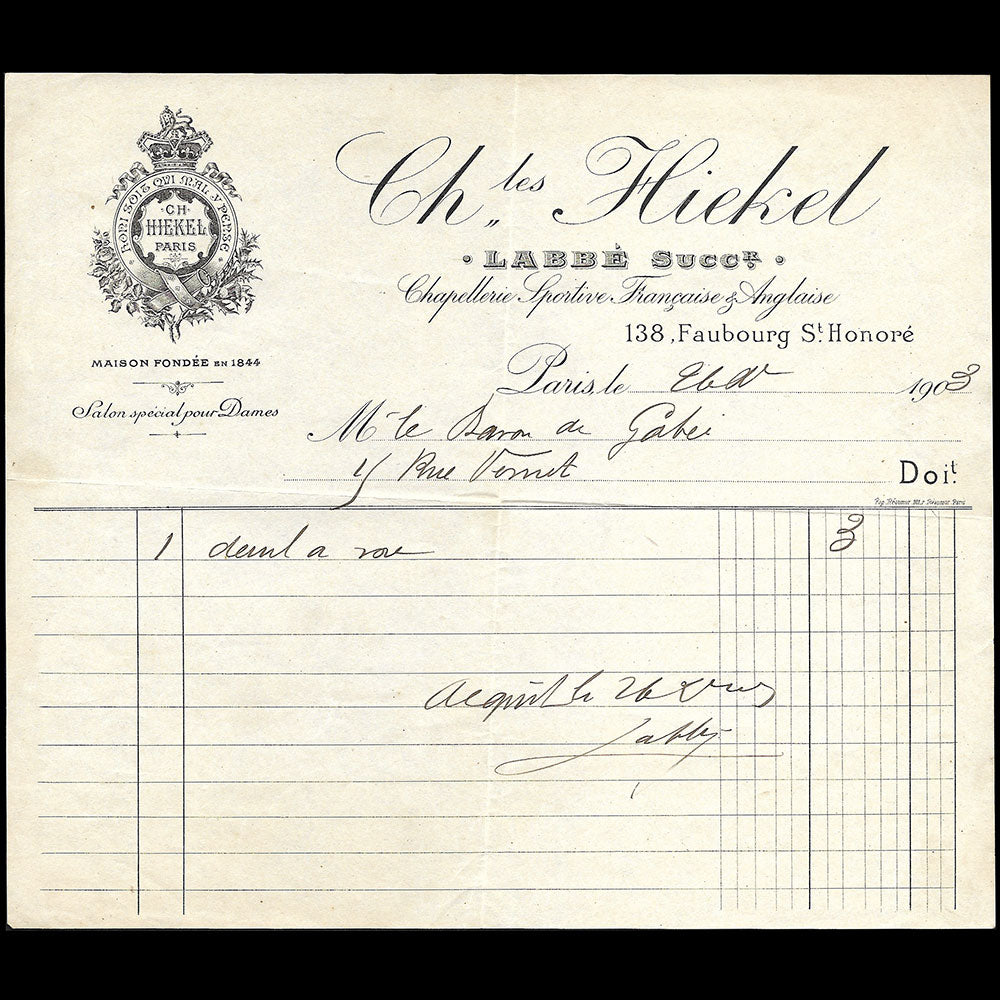 HONI SOIT QUI MAL Y PENSE
CH
HIEKEL
PARIS
MAISON FONDÉE EN 1844
Salon spécial pour Dames
Ch les Hiekel
LABBÉ SUCCR.
Chapellerie Sportive Française & Anglaise
138, Faubourg St. Honoré
Paris, le 26 1903
Mr le Baron de
Rue Vernet
Doit.
1 deuil a 3
Acquit le 26
Labbé